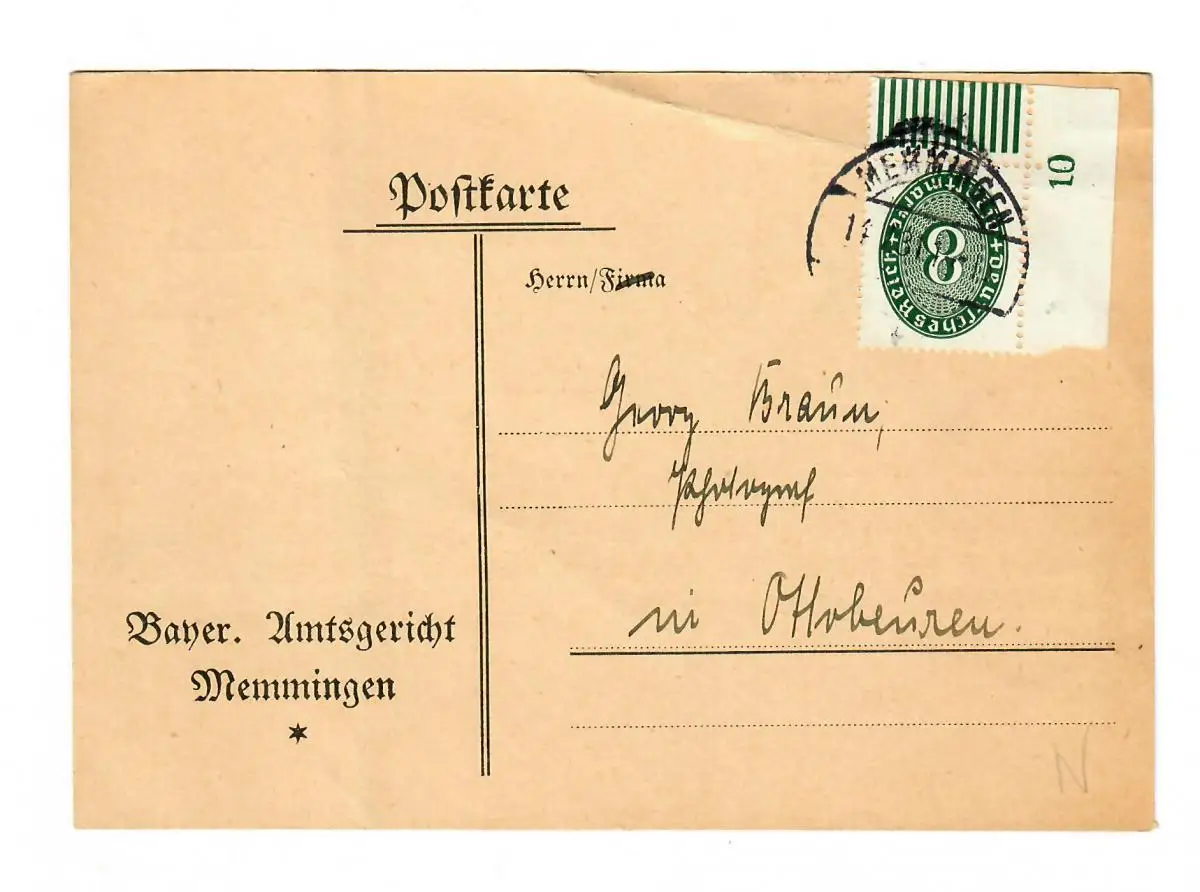 Postkarte
10
MEMMINGEN
14
8
Deutsches Reich + Dienstmarke +
Herrn/Firma
Georg Braun,
Photograf
in Ottobeuren.
Bayer. Amtsgericht
Memmingen
*
N